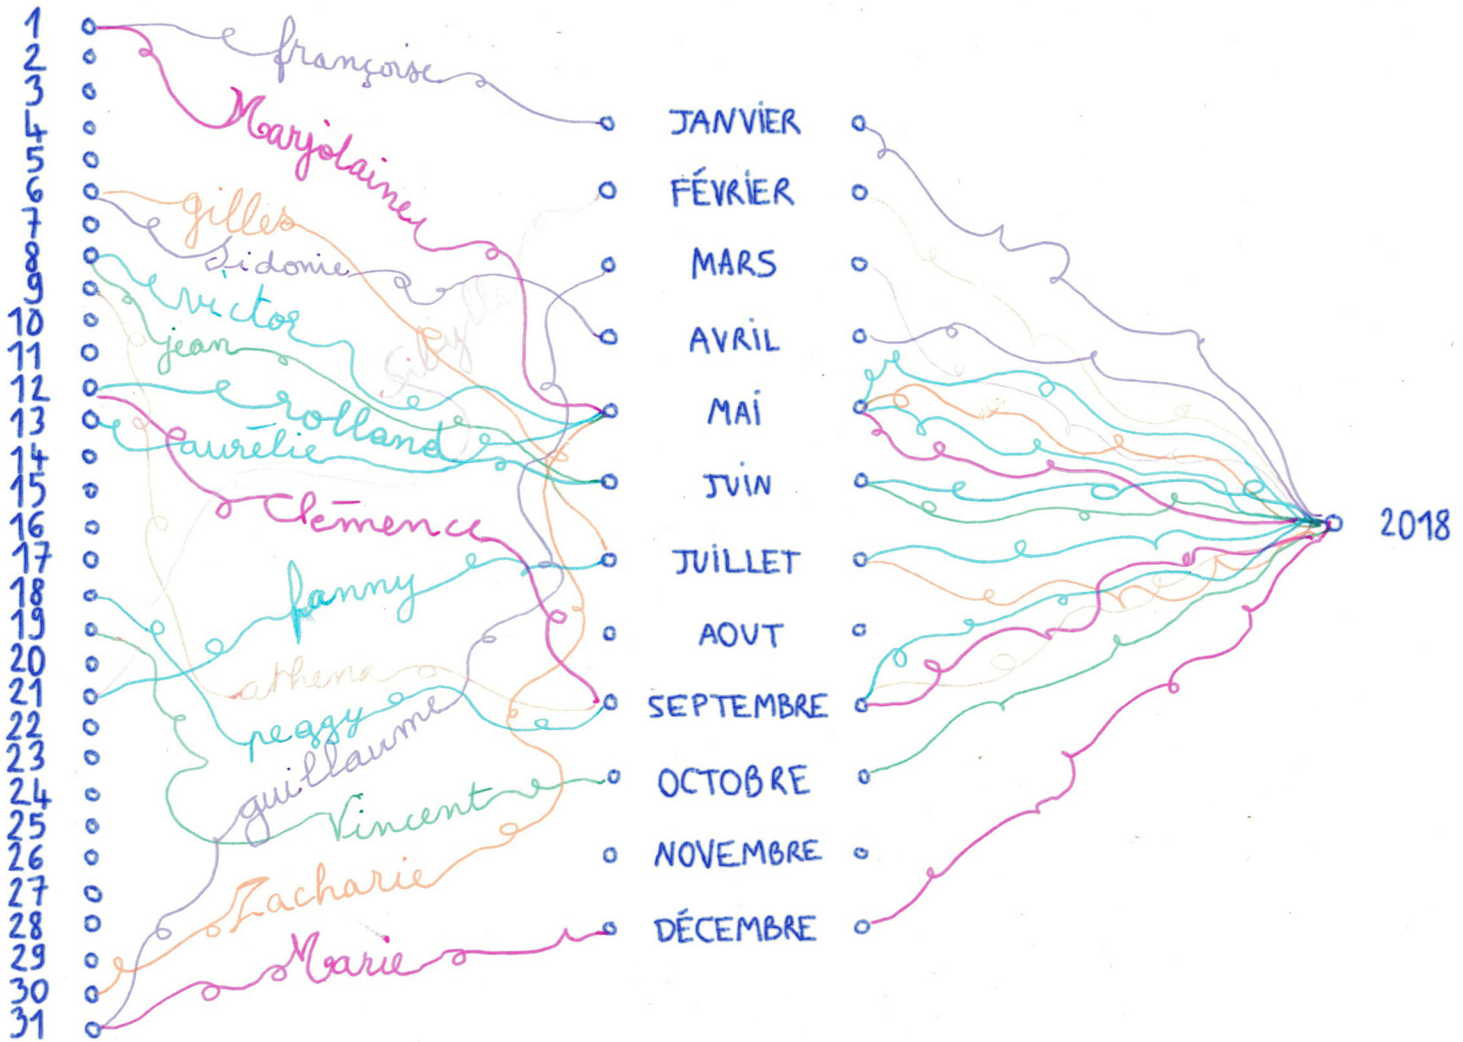 1
2
3
4
5
6
7
8
9
10
11
12
13
14
15
16
17
18
19
20
21
22
23
24
25
26
27
28
29
30
31
françoise
Marjolaine
gilles
Sidonie
victor
jean
Sibylle
rolland
aurélie
Clémence
fanny
athena
peggy
guillaume
Vincent
Zacharie
Marie
JANVIER
FÉVRIER
MARS
AVRIL
MAI
JUIN
JUILLET
AOUT
SEPTEMBRE
OCTOBRE
NOVEMBRE
DÉCEMBRE
2018